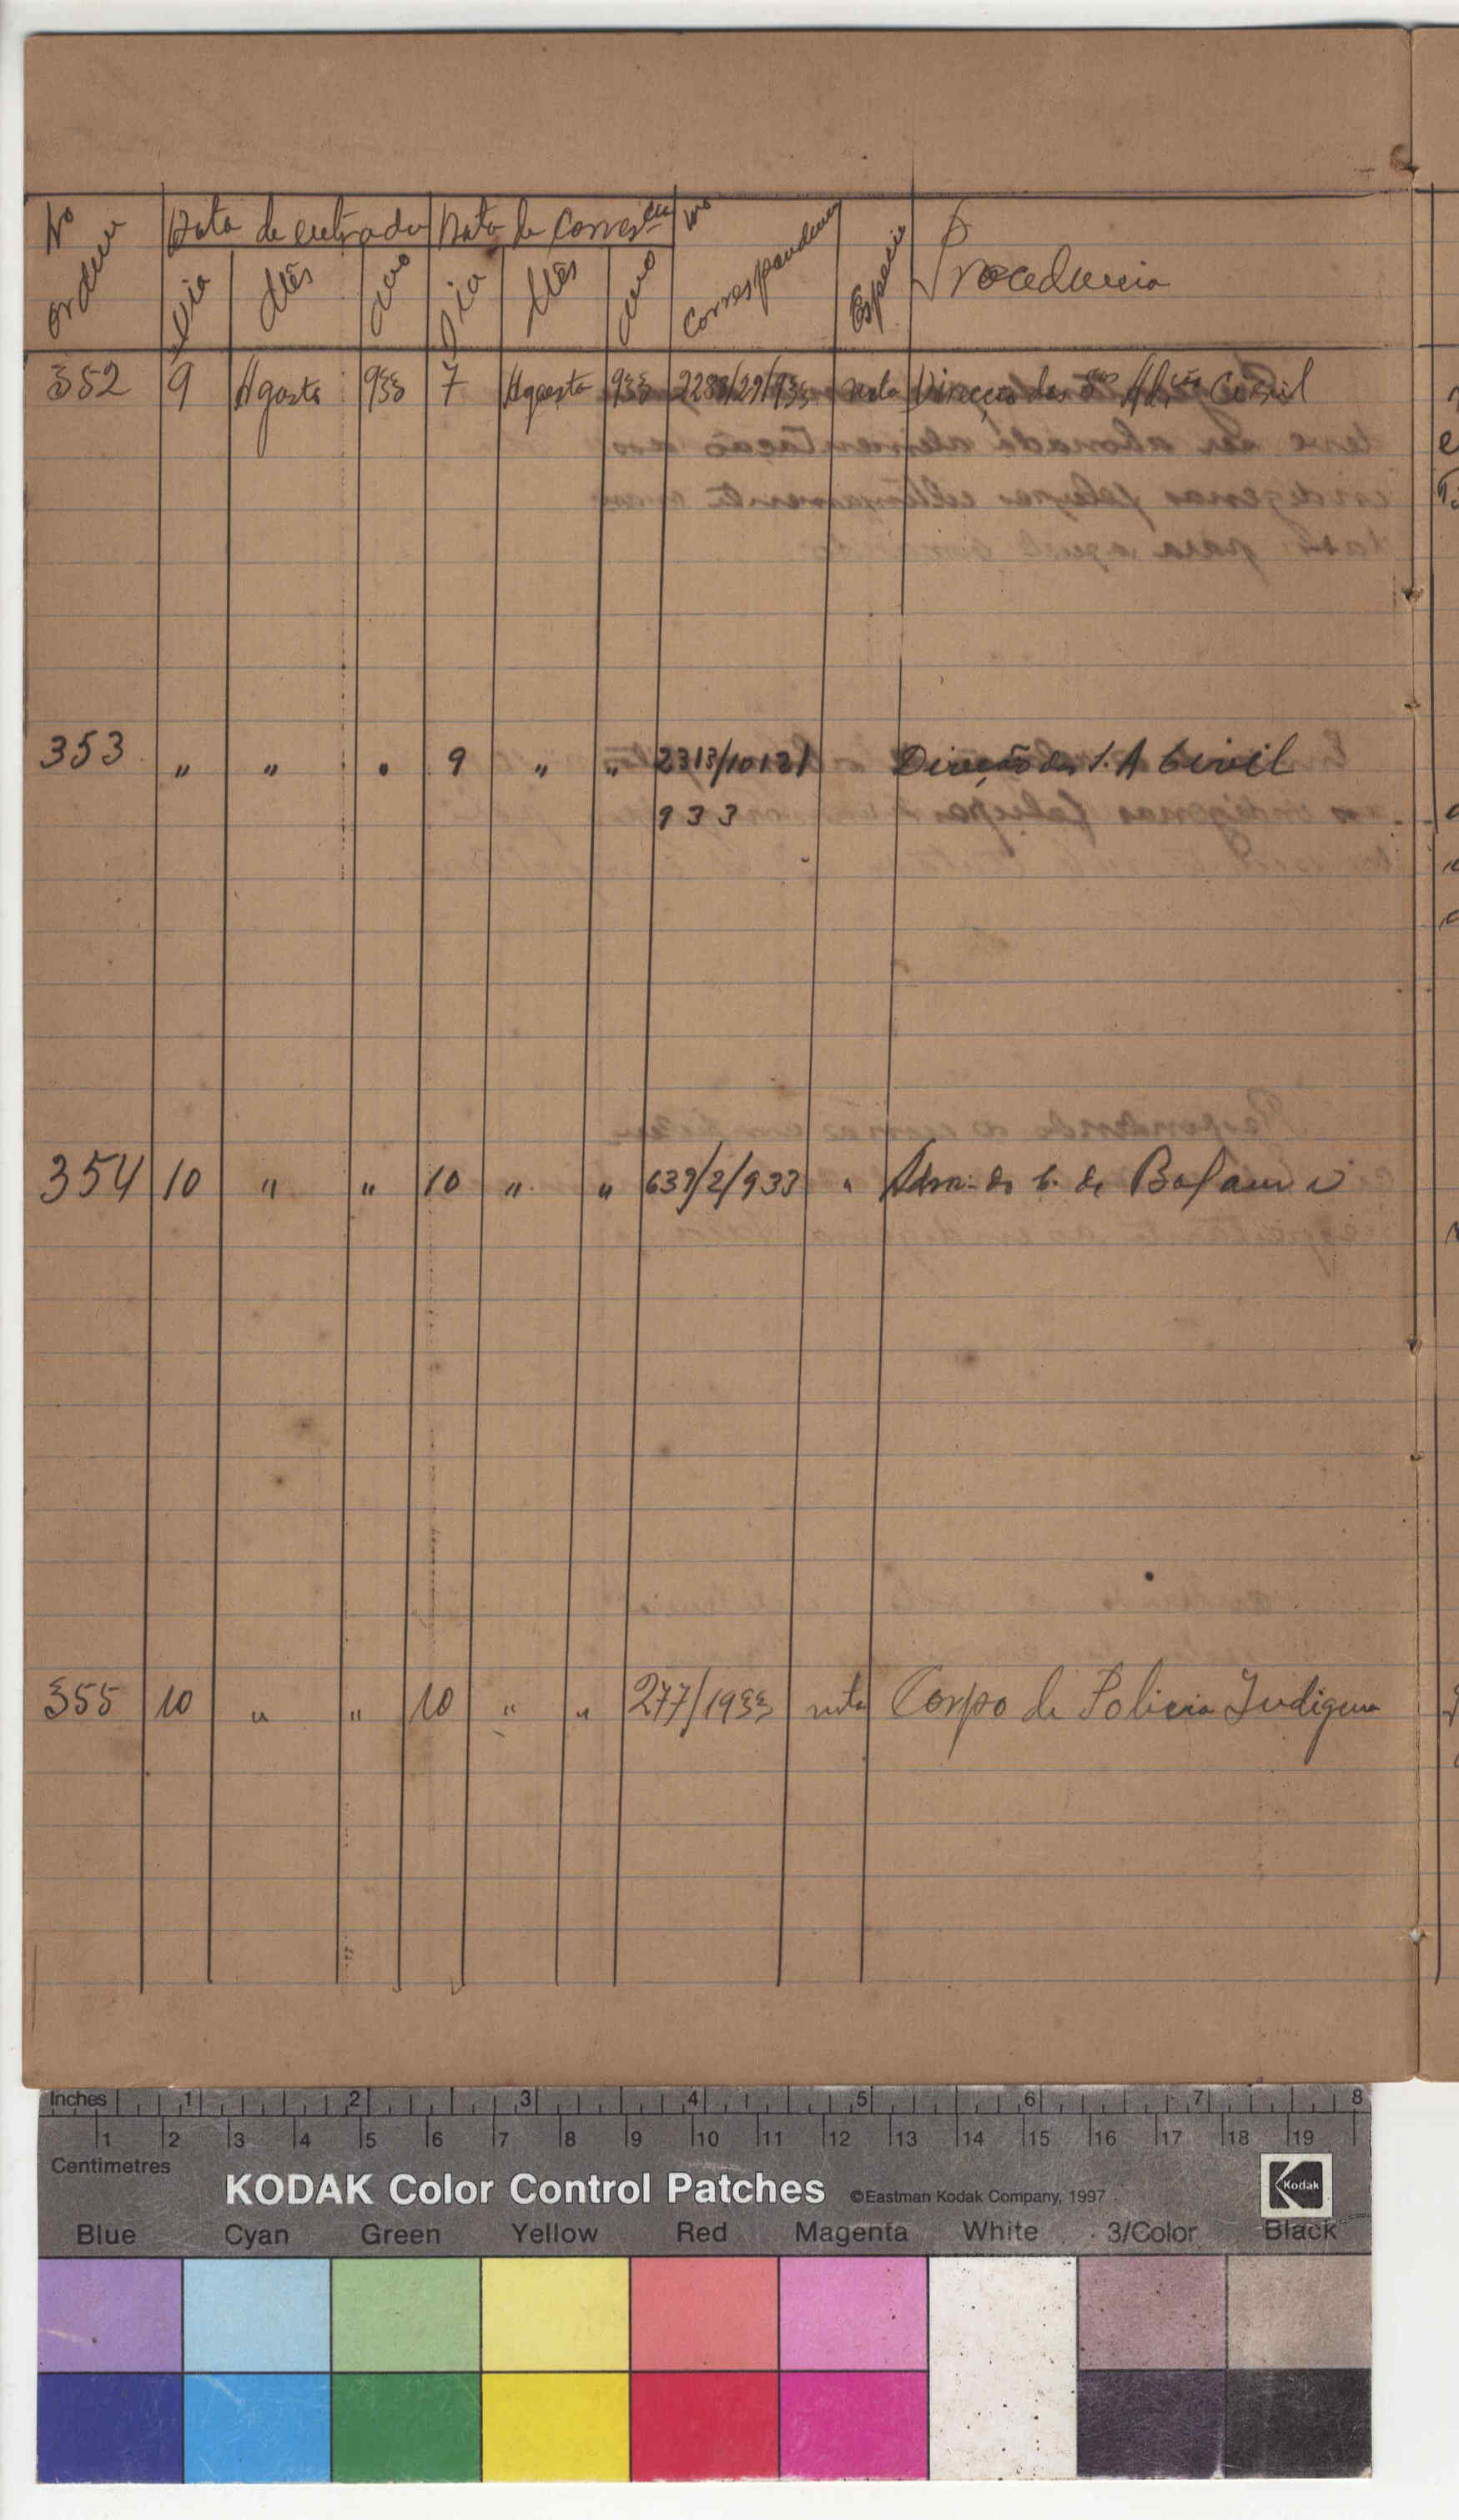 Nº ordem Data de entrada Data da Correscia Nº Correspondencia Especie Procedencia
Dia Mês ano Dia Mês ano
352 9 Agosto 933 7 Agosto 933 2288/29/933 nota Direcção dos Sços Adção Civil
353 " " " 9 " " 2313/10121 Direção dos S. A Civil
933
354 10 " " 10 " " 639/2/933 " Adm. do C. de Bafamá
355 10 " " 10 " " 277/1933 nota Corpo de Policia Indigena
Inches 1 2 3 4 5 6 7 8
1 2 3 4 5 6 7 8 9 10 11 12 13 14 15 16 17 18 19
Centimetres
KODAK Color Control Patches ©Eastman Kodak Company, 1997 Kodak
Blue Cyan Green Yellow Red Magenta White 3/Color Black